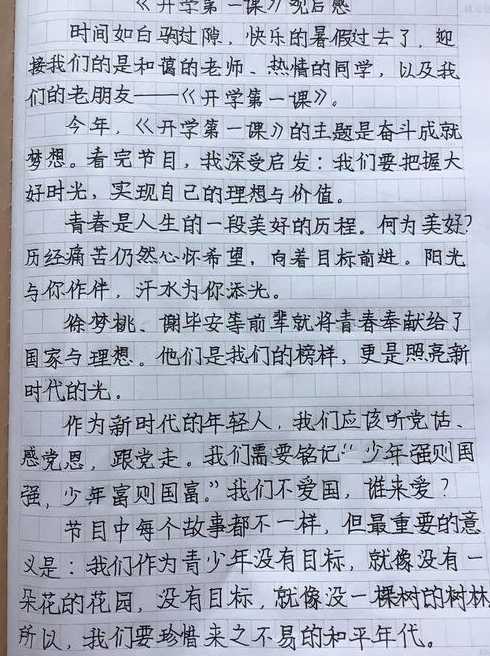 《开学第一课》观后感
时间如白驹过隙，快乐的暑假过去了，迎
接我们的是和蔼的老师、热情的同学，以及我
们的老朋友——《开学第一课》。
今年，《开学第一课》的主题是奋斗成就
梦想。看完节目，我深受启发：我们要把握大
好时光，实现自己的理想与价值。
青春是人生的一段美好的历程。何为美好？
历经痛苦仍然心怀希望，向着目标前进。阳光
与你作伴，汗水为你添光。
徐梦桃、谢毕安等前辈就将青春奉献给了
国家与理想。他们是我们的榜样，更是照亮新
时代的光。
作为新时代的年轻人，我们应该听党话、
感党恩，跟党走。我们需要铭记“少年强则国
强，少年富则国富。”我们不爱国，谁来爱？
节目中每个故事都不一样，但最重要的意
义是：我们作为青少年没有目标，就像没有一
朵花的花园，没有目标，就像没一棵树的树林
所以，我们要珍惜来之不易的和平年代。